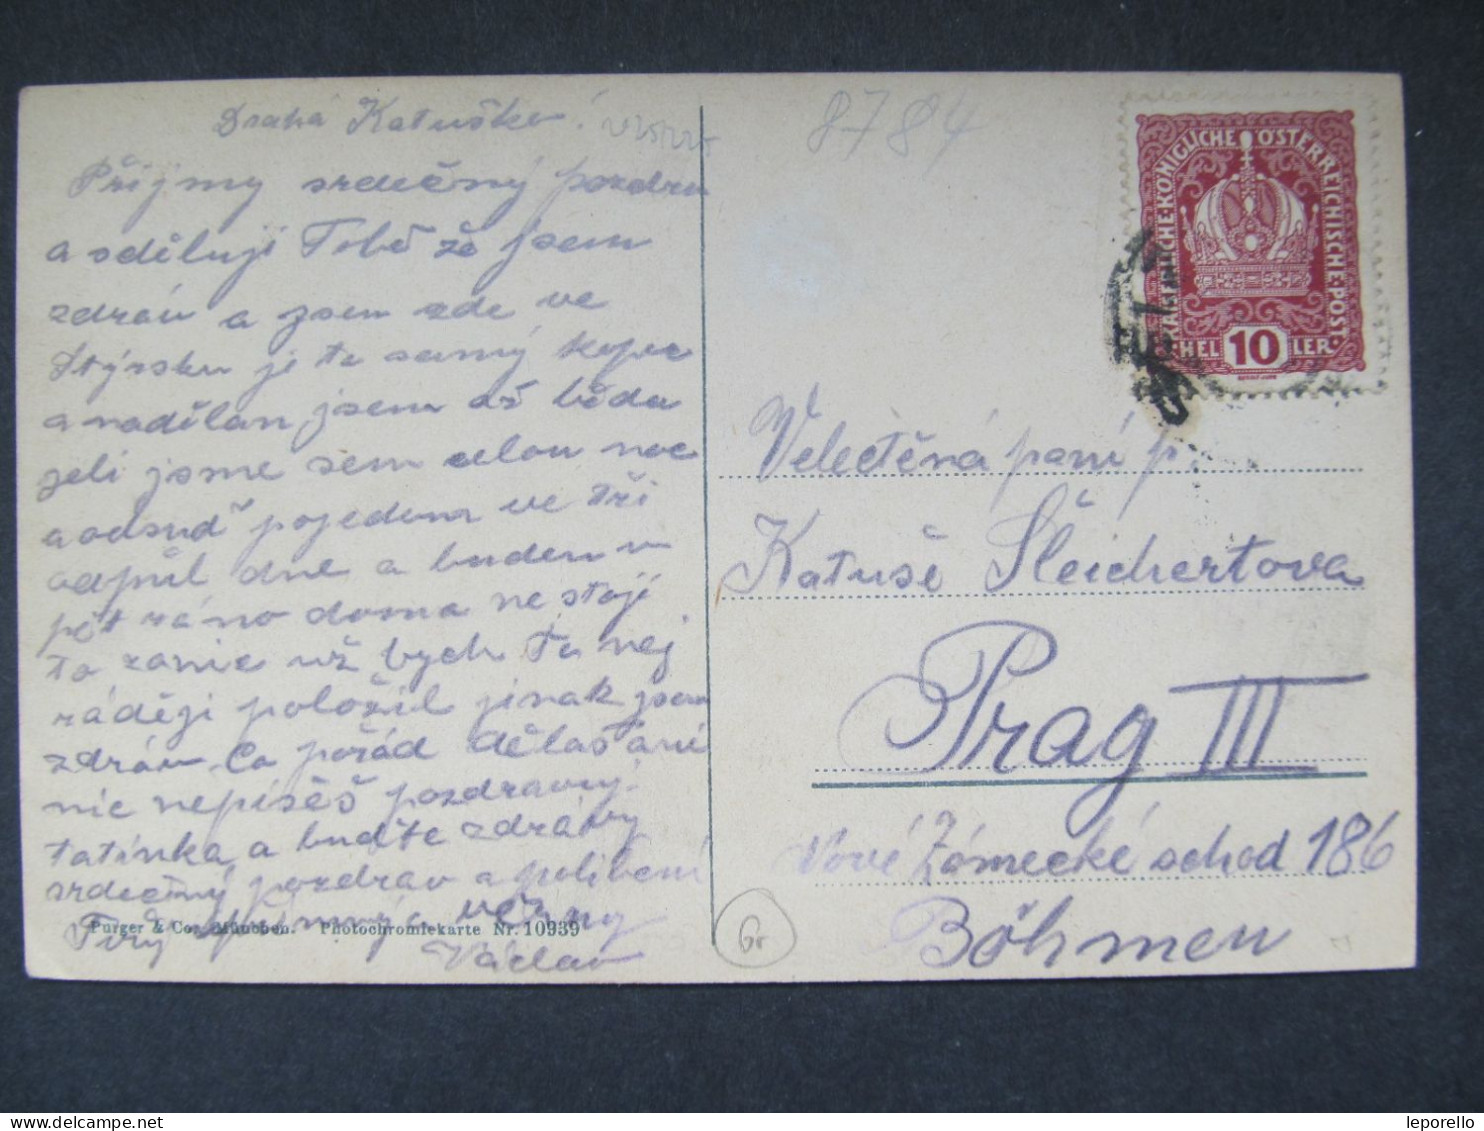 Drahá Katuško!
Příjmy srdečný pozdrav
a sděluji Tobě že jsem
zdráv a jsem zde ve
Štýrsku je to samý kopec
a nadělan jsem až běda
jeli jsme sem celou noc
a odsud pojedem ve tři
odpůl dne a budem v
pět ráno doma nestojí
to zanic už bych to nej
ráději položil jinak jsem
zdráv Co pořád děláš ani
nic nepíšéš pozdravuj
tatínka a buďte zdrávy
srdečný pozdrav a políbení
Tvůj upřímný a věrný
Václav
Purger & Co., München. Photochromiekarte Nr. 10939
8784
KAISERLICHE·KÖNIGLICHE ÖSTERREICHISCHE·POST·
HEL 10 LER
Velectěná paní p.
Katuše Šleichertova
Prag III
Nové Zámecké schod 186
Böhmen
Gr
leporello